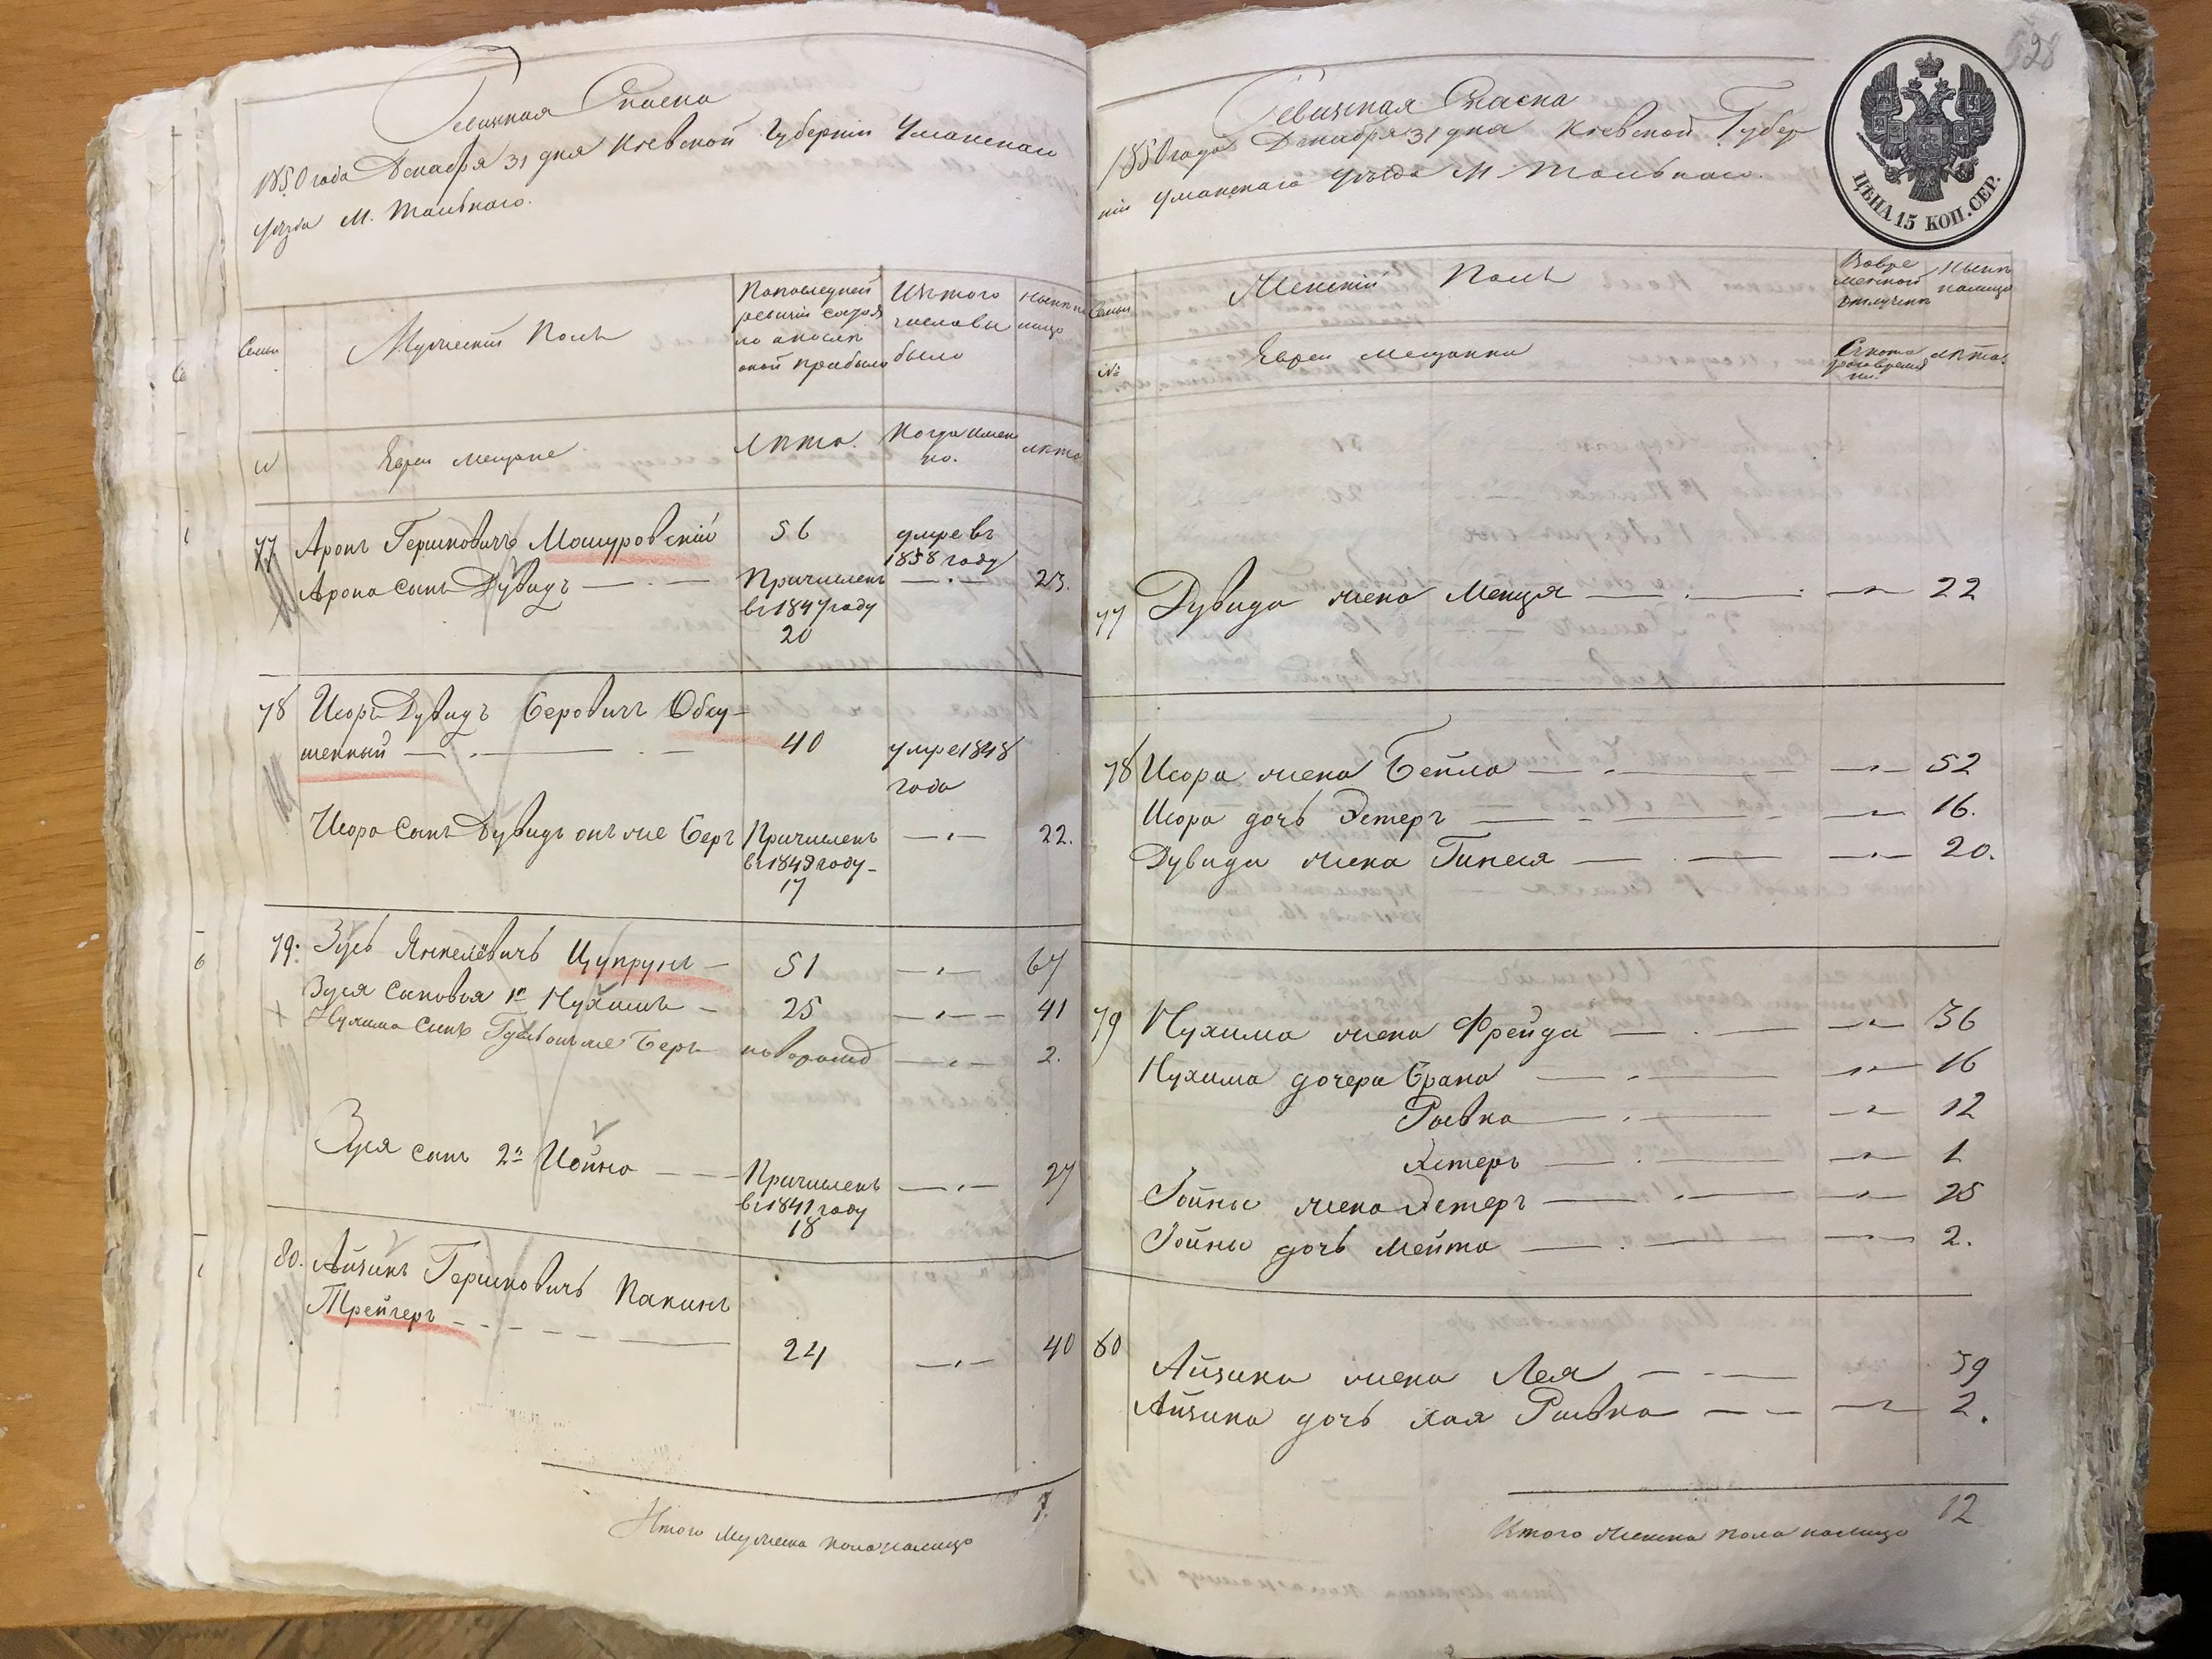 Ревизская Сказка
1850 года Декабря 31 дня Киевской Губернии Уманскаго
уезда М. Тальнаго.
Семьи
Мужеский Полъ
По последней
ревизии состоя
ло и после
оной прибыло
Изъ того
числа вы
было
Ныне на
лицо
№
Евреи мещане
Лета.
Когда имен
но.
лета
77 Аронъ Гершковичъ Мошуровский 56 умре въ
1858 году
Арона сынъ Дувидъ Причисленъ 23.
въ 1847 году
20
78 Исоръ Дувидъ Беровичъ Обсу-
шенный 40 умре 1848
года
Исора сынъ Дувидъ онъ же Беръ Причисленъ 22.
въ 1848 году
17
79. Зусь Янкелевичъ Цупрунъ 51 67
Зуся сыновья 1й Нухимъ 25 41
Нухима сынъ онъ же Беръ новорожд 2.
Зуся сынъ 2й Иойна Причисленъ 27
въ 1841 году
18
80. Айзикъ Гершковичъ Пакинъ
Трейгеръ 24 40
Итого мужеска пола налицо 7.
528
Ревизская Сказка
1850 года Декабря 31 дня Киевской Губер
нии Уманскаго уезда М. Тальнаго.
ЦѢНА 15 КОП. СЕР.
Семьи
Женский Полъ
Во вре
менной
отлучке
Ныне
налицо
№
Евреи Мещанки
Съ кота
раго време
ни.
лета.
77 Дувида жена Менця 22
78 Исора жена Бейла 52
Исора дочь Эстеръ 16.
Дувида жена Гинеся 20.
79 Нухима жена Фрейда 36
Нухима дочера Брана 16
Рывка 12
Эстеръ 1
Иойны жена Эстеръ 25
Иойны дочь Мейта 2.
80
Айзика жена Лея 39
Айзика дочь Хая Рывка 2.
Итого женска пола налицо 12